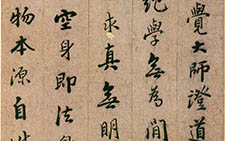 覺大師證道
絕學無為閒
求真無明
空身即法
物本源自性